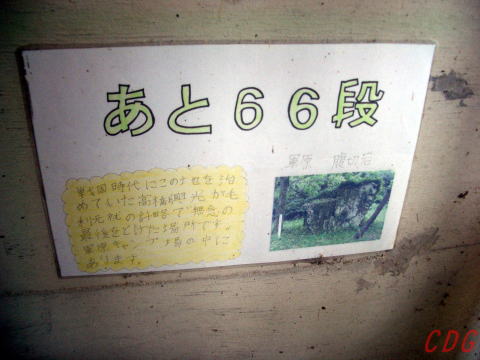 あと66段
軍原 腹切岩
戦国時代にこの地を治
めていた高橋興光が毛
利元就の計略で無念の
最後をとげた場所です。
軍原キャンプ場の中に
あります。
CDG